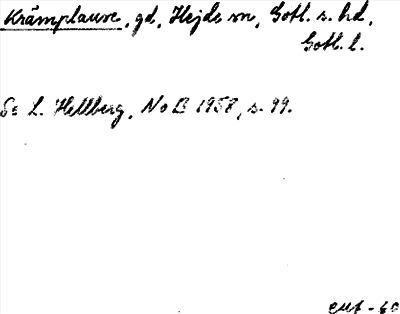 Krämplause, gd, Hejde sn, Gotl. s. hd,
Gotl. l.
Se L. Hellberg, NoB 1958, s. 99.